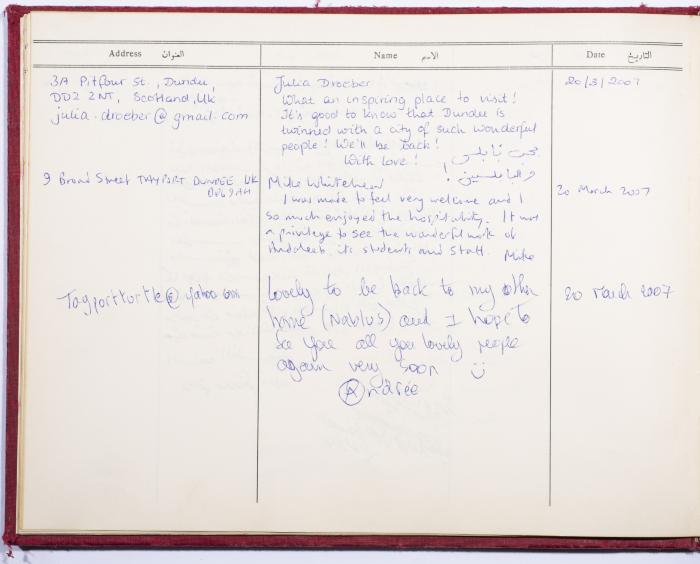 Address العنوان
Name الاسم
Date التاريخ
3A Pitfour St., Dundee,
DD2 2NT, Scotland, UK
julia.droeber@gmail.com
Julia Droeber
What an inspiring place to visit!
It's good to know that Dundee is
twinned with a city of such wonderful
people! We'll be back!
With love!
20/3/2007
9 Broad Street TAYPORT DUNDEE UK
DD6 9AH
Mike Whitehead
I was made to feel very welcome and I
so much enjoyed the hospitality. It was
a privilege to see the wonderful work of
its students and staff. Mike
20 March 2007
Tayportturtle@yahoo.com
Lovely to be back to my other
home (Nablus) and I hope to
see you all you lovely people
again very soon
Andrée
20 March 2007